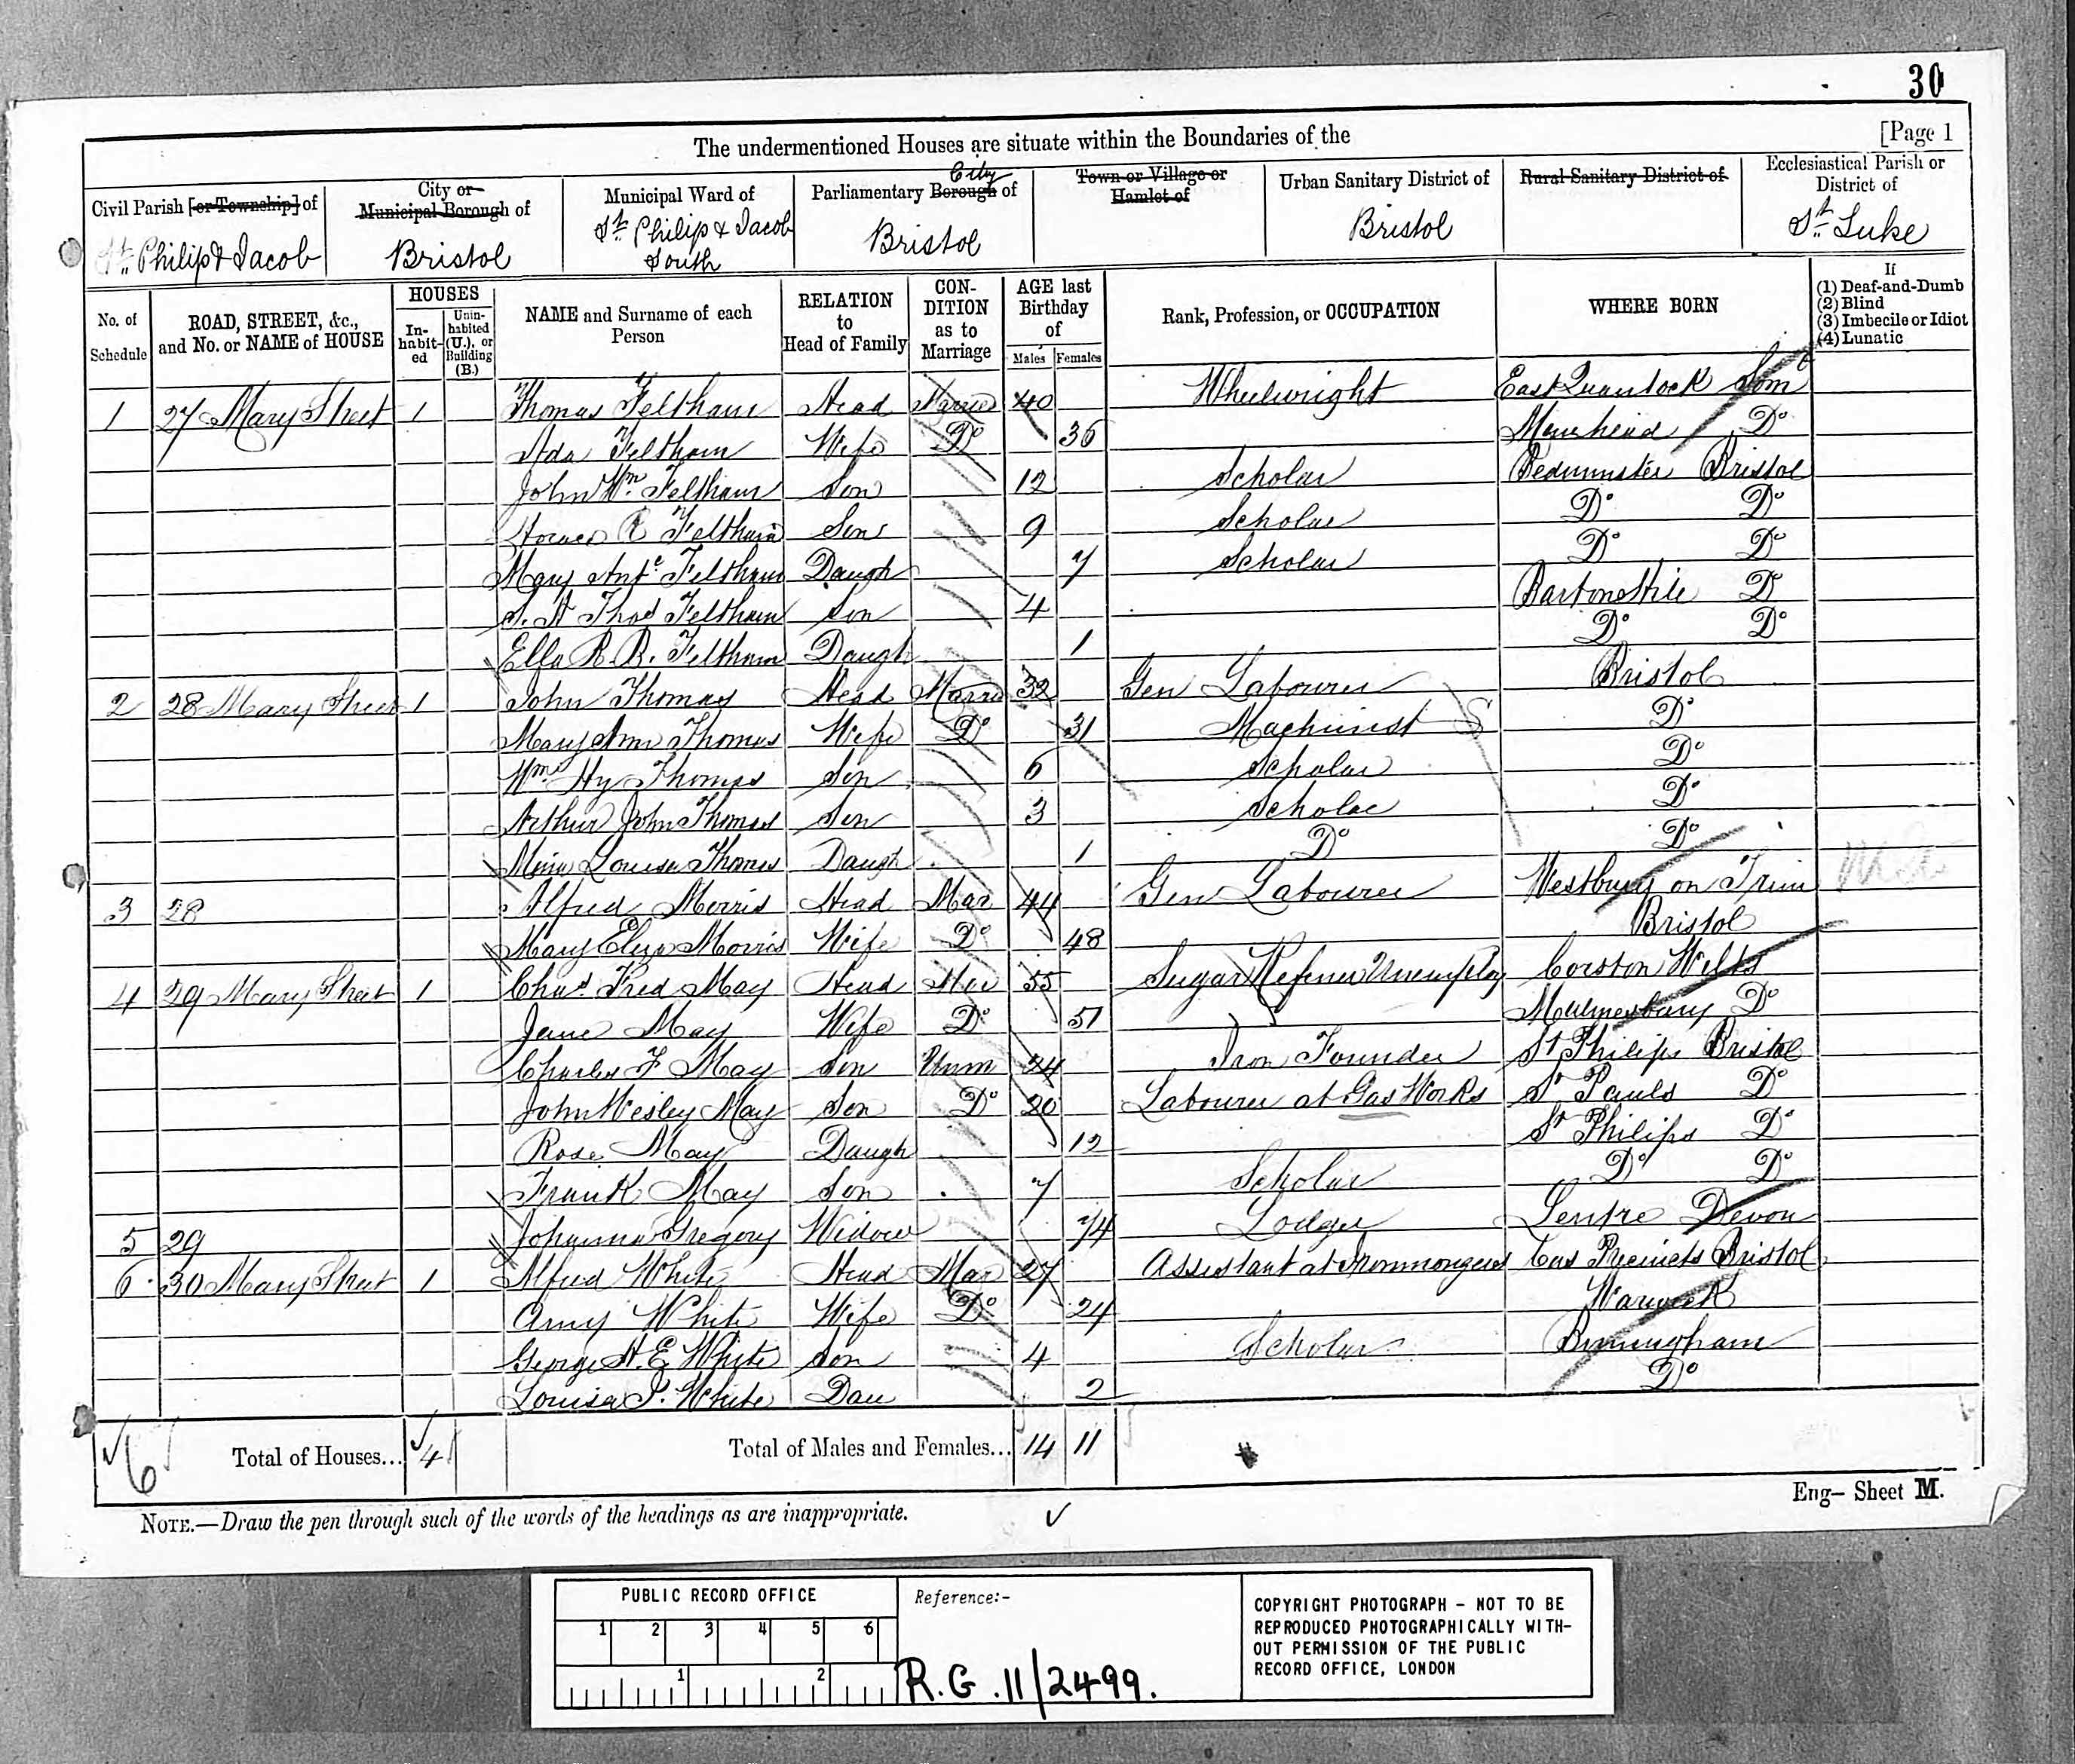 30
The undermentioned Houses are situate within the Boundaries of the [Page 1
Civil Parish [or Township] of St. Philip & Jacob
City or Municipal Borough of Bristol
Municipal Ward of St. Philip & Jacob South
Parliamentary Borough City of Bristol
Town or Village or Hamlet of
Urban Sanitary District of Bristol
Rural Sanitary District of
Ecclesiastical Parish or District of St. Luke
No. of Schedule
ROAD, STREET, &c., and No. or NAME of HOUSE
HOUSES
In-habit-ed
Unin-habited (U.), or Building (B.)
NAME and Surname of each Person
RELATION to Head of Family
CON-DITION as to Marriage
AGE last Birthday of
Males Females
Rank, Profession, or OCCUPATION
WHERE BORN
If
(1) Deaf-and-Dumb
(2) Blind
(3) Imbecile or Idiot
(4) Lunatic
1 27 Mary Street 1 Thomas Feltham Head Married 40 Wheelwright East Quantock Som
Ada Feltham Wife Do 36 Do
John Wm. Feltham Son 12 Scholar Bedminster Bristol
Horace R Feltham Son 9 Scholar Do Do
Mary Feltham Daugh 7 Scholar Do Do
Thos Feltham Son 4 Do
Ella R. B. Feltham Daugh 1 Do Do
2 28 Mary Street 1 John Thomas Head Marrd 32 Gen Labourer Bristol
Mary Ann Thomas Wife Do 31 Machinist Do
Wm Hy Thomas Son 6 Scholar Do
Arthur John Thomas Son 3 Scholar Do
Louisa Thomas Daugh 1 Do Do
3 28 Alfred Morris Head Mar 44 Gen Labourer Westbury on Trim
Mary Eliza Morris Wife Do 48 Bristol
4 29 Mary Street 1 Chas. Fred May Head Mar 55 Sugar Refiner Unemploy Corston Wilts
Jane May Wife Do 51 Malmesbury Do
Charles F May Son Unm 24 Iron Founder St Philips Bristol
John Wesley May Son Do 20 Labourer at Gas Works St Pauls Do
Rose May Daugh 12 St Philips Do
Frank May Son 7 Scholar Do Do
5 29 Johanna Gregory Widow 74 Lodger Devon
6 30 Mary Street 1 Alfred White Head Mar 27 Assistant at Ironmongers Cas Precincts Bristol
Amy White Wife Do 24 Warwick
George H. E White Son 4 Scholar Birmingham
Louisa White Dau 2 Do
6 Total of Houses... 4 Total of Males and Females... 14 11
Eng– Sheet M.
NOTE.—Draw the pen through such of the words of the headings as are inappropriate.
PUBLIC RECORD OFFICE
1 2 3 4 5 6
1 2
Reference:-
R.G. 11/2499.
COPYRIGHT PHOTOGRAPH - NOT TO BE
REPRODUCED PHOTOGRAPHICALLY WITH-
OUT PERMISSION OF THE PUBLIC
RECORD OFFICE, LONDON